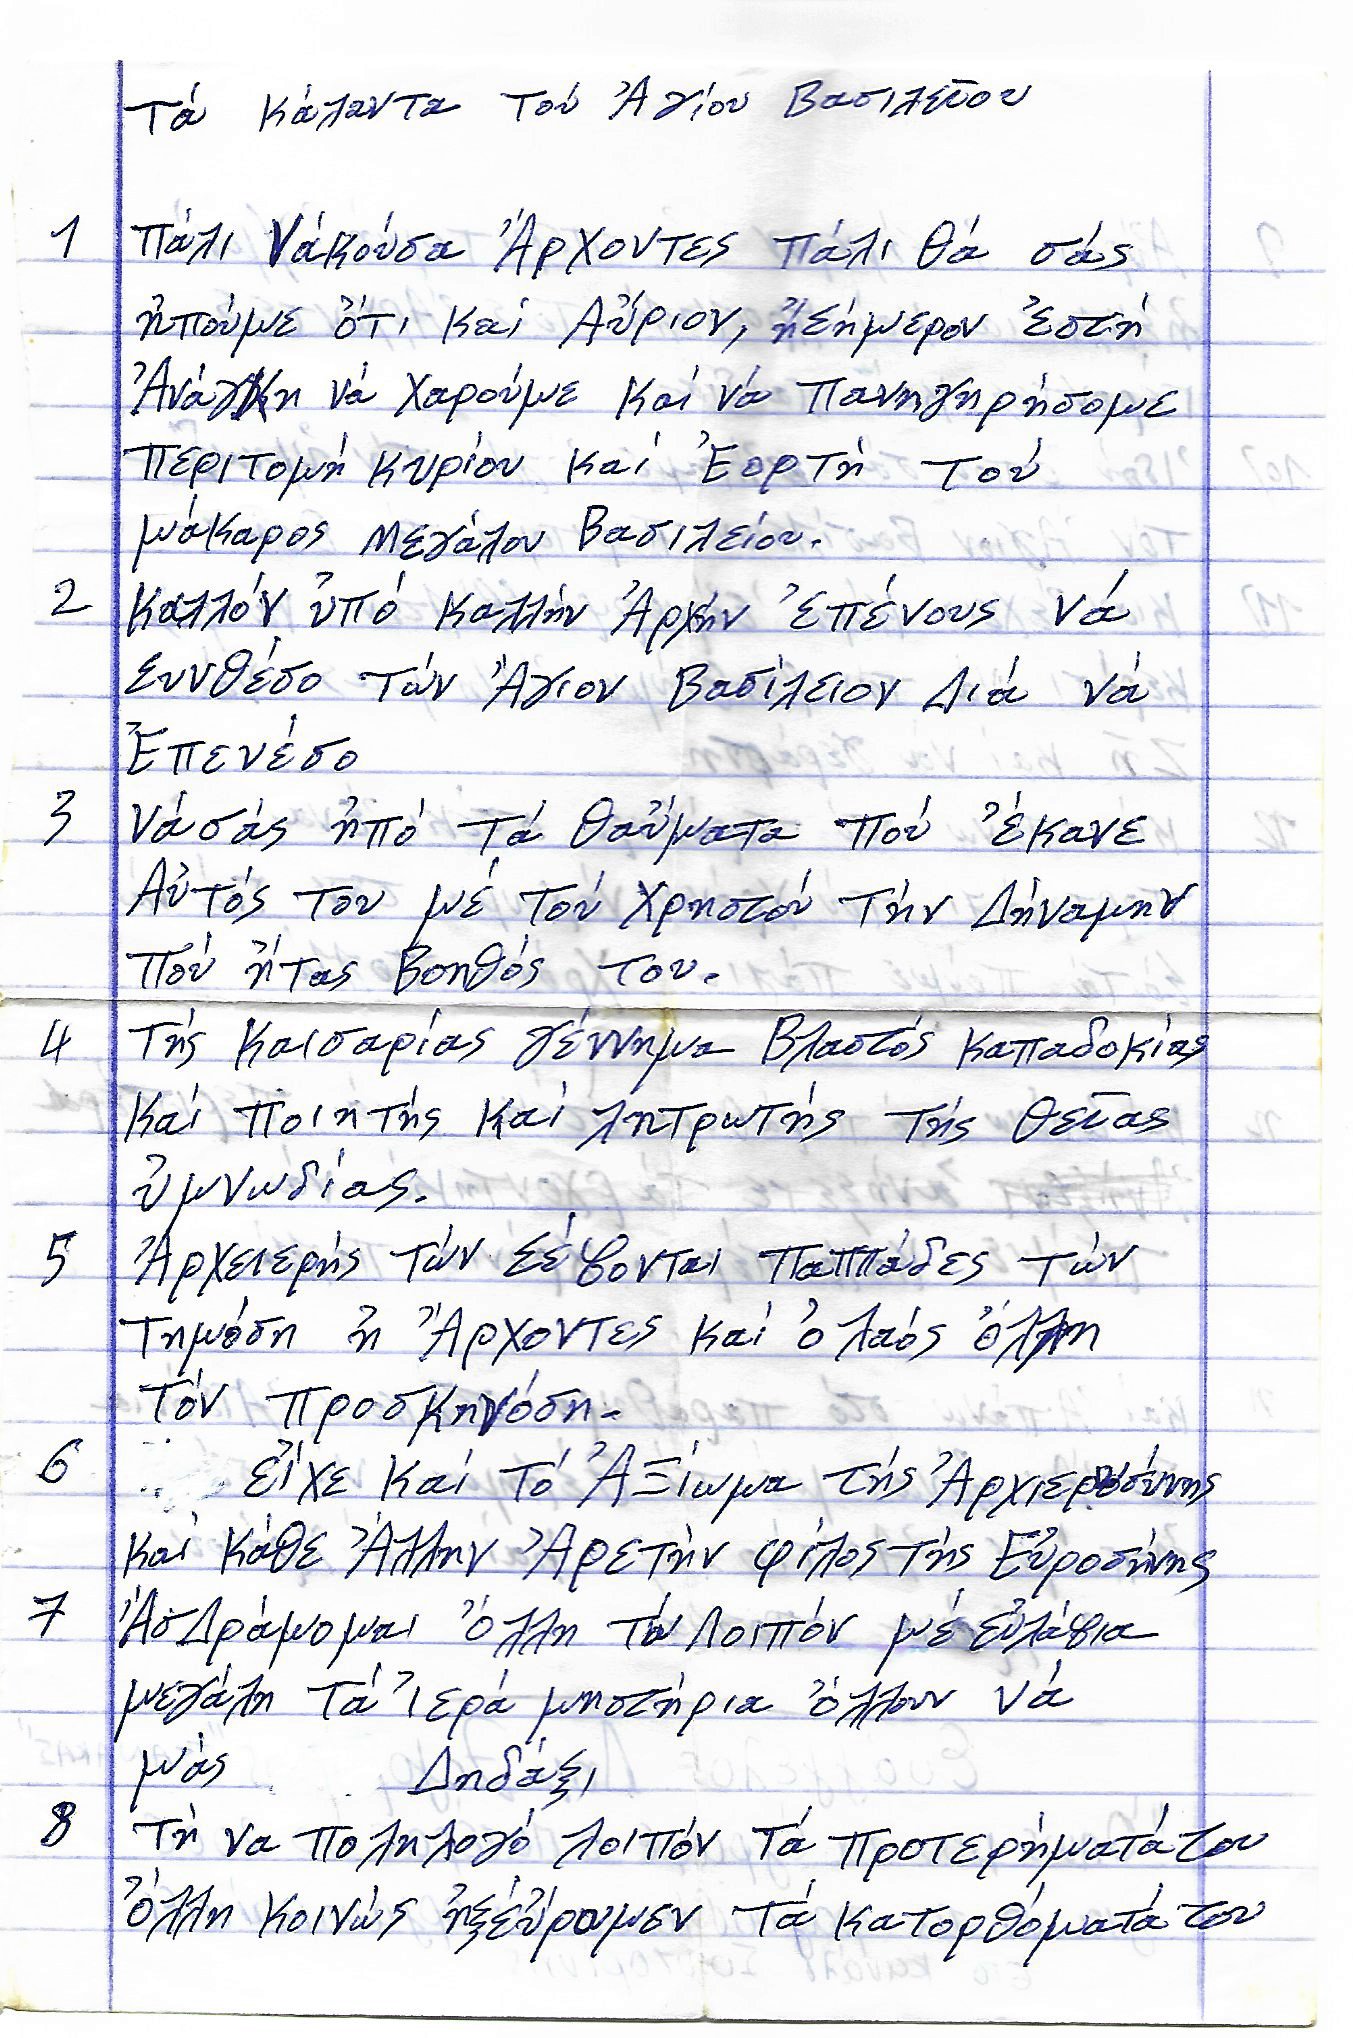 Τά Κάλαντα τού Ἁγίου Βασιλείου
1 Πάλι νάκούσα Ἄρχοντες πάλι θά σάς
ἠπούμε ὅτι καί Αὔριον, ἤΣήμερον Ἐστή
Ἀνάγκη νά χαρούμε καί νά πανηγηρήσομε
περιτομή κυρίου καί Ἑορτή τού
μάκαρος Μεγάλου Βασιλείου.
2 Καλλόν ὑπό καλλήν Ἀρχήν Ἐπένους νά
Συνθέσο τών Ἅγιον Βασίλειον Διά νά
Ἐπενέσο
3 Νά σάς ἠπό τά θαύματα πού ἔκανε
Αὐτός του μέ τού Χρηστού τήν Δήναμην
πού ἤτας Βοηθός του.
4 Τής Καισαρίας γέννημα Βλαστός καπαδοκίας
καί ποιητής καί λητρωτής τής θείας
ὑμνωδίας.
5 Ἀρχειερής τών Σέβονται παππάδες τών
τημόση ἠ Ἄρχοντες καί ὁ λαός ὅλλη
τόν προσκηνόση.
6 εἶχε καί τό Ἀξίωμα τής Ἀρχιεροσύνης
καί κάθε Ἄλλην Ἀρετήν φίλος τής Εὐροσήνης
7 Ἀς Δράμομαι ὅλλη τόν Λοιπόν μέ εὐλάβια
μεγάλη τά Ἱερά μηστήρια ὅλλουν νά
μάς Δηδάξι
8 Τή να πολλλογό λοιπόν τά προτερήματά του
ὅλλη κοινώς ἠξεύρουμεν τά κατορθόματά του